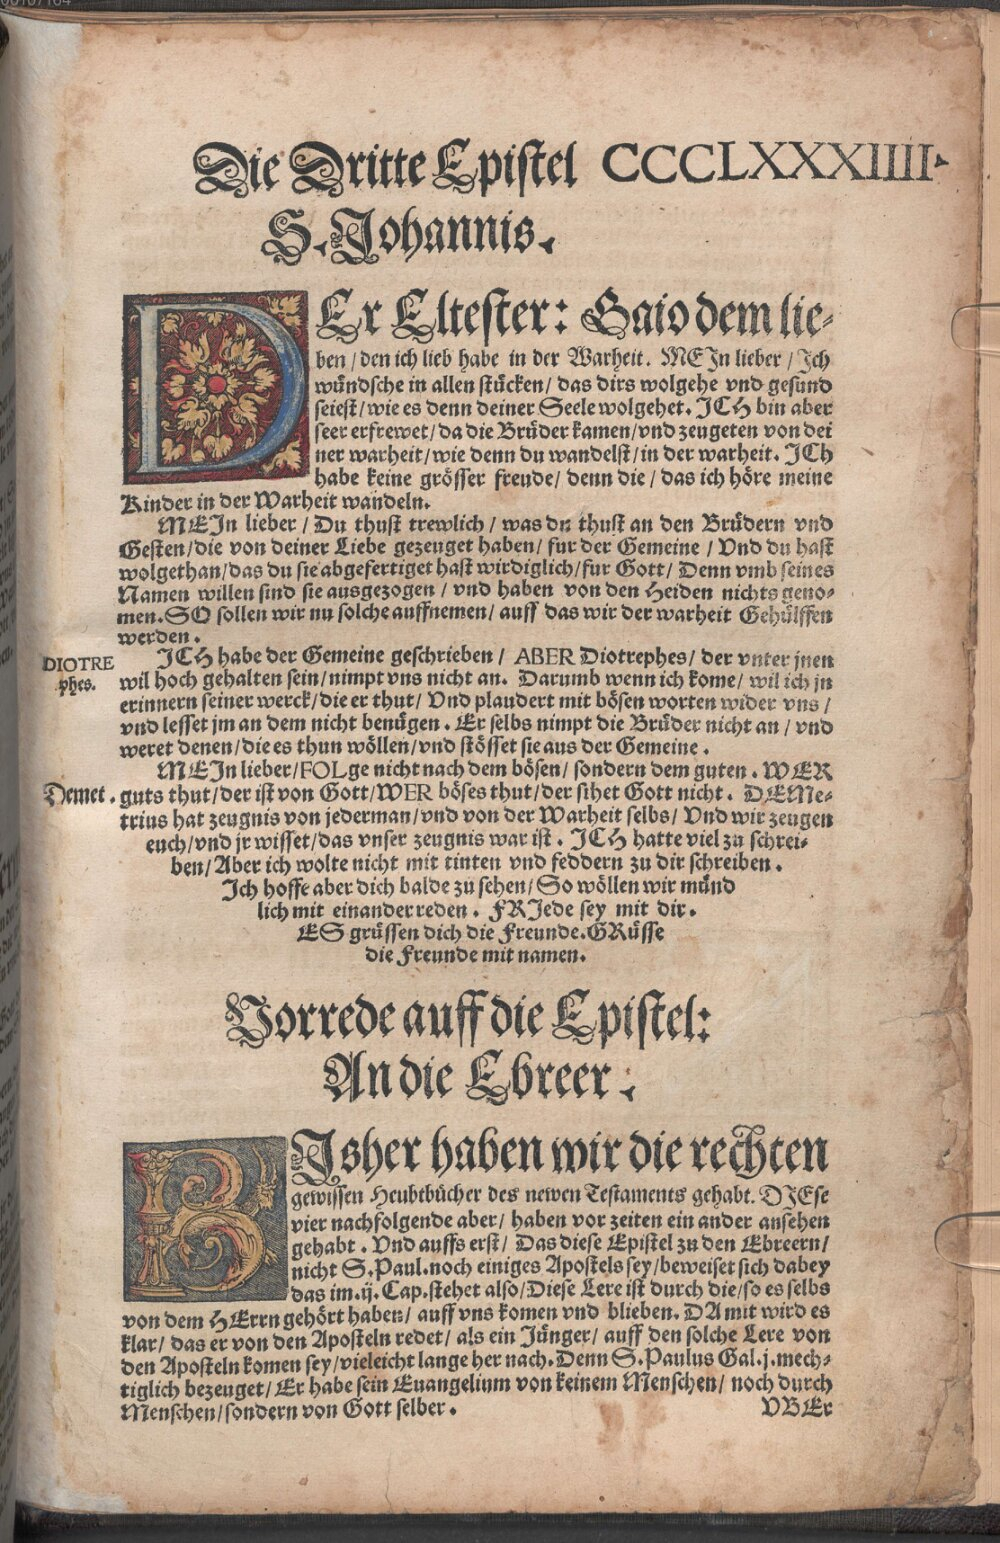 Die Dritte Epistel CCCLXXXIIII.
S. Johannis.
DEr Eltester: Gaio dem lie-
ben / den ich lieb habe in der Warheit. MEJn lieber / Jch
wündsche in allen stücken / das dirs wolgehe vnd gesund
seiest / wie es denn deiner Seele wolgehet. JCH bin aber
seer erfrewet / da die Brüder kamen / vnd zeugeten von dei
ner warheit / wie denn du wandelst / in der warheit. JCh
habe keine grösser freude / denn die / das ich höre meine
Kinder in der Warheit wandeln.
MEJn lieber / Du thust trewlich / was du thust an den Brüdern vnd
Gesten / die von deiner Liebe gezeuget haben / fur der Gemeine / Vnd du hast
wolgethan / das du sie abgefertiget hast wirdiglich / fur Gott / Denn vmb seines
Namen willen sind sie ausgezogen / vnd haben von den Heiden nichts geno-
men. SO sollen wir nu solche auffnemen / auff das wir der warheit Gehülffen
werden.
DIOTRE
phes.
JCH habe der Gemeine geschrieben / ABER Diotrephes / der vnter jnen
wil hoch gehalten sein / nimpt vns nicht an. Darumb wenn ich kome / wil ich jn
erinnern seiner werck / die er thut / Vnd plaudert mit bösen worten wider vns /
vnd lesset jm an dem nicht benügen. Er selbs nimpt die Brüder nicht an / vnd
weret denen / die es thun wöllen / vnd stösset sie aus der Gemeine.
MEJn lieber / FOLge nicht nach dem bösen / sondern dem guten. WER
Demet.
guts thut / der ist von Gott / WER böses thut / der sihet Gott nicht. DEMe-
trius hat zeugnis von jederman / vnd von der Warheit selbs / Vnd wir zeugen
euch / vnd jr wisset / das vnser zeugnis war ist. JCH hatte viel zu schrei-
ben / Aber ich wolte nicht mit tinten vnd feddern zu dir schreiben.
Jch hoffe aber dich balde zu sehen / So wöllen wir münd
lich mit einander reden. FRJede sey mit dir.
ES grüssen dich die Freunde. GRüsse
die Freunde mit namen.
Vorrede auff die Epistel:
An die Ebreer.
BJsher haben wir die rechten
gewissen Heubtbücher des newen Testaments gehabt. DJEse
vier nachfolgende aber / haben vor zeiten ein ander ansehen
gehabt. Vnd auffs erst / Das diese Epistel zu den Ebreern /
nicht S. Paul. noch einiges Apostels sey / beweiset sich dabey
das im. ij. Cap. stehet also / Diese Lere ist durch die / so es selbs
von dem HErrn gehört haben / auff vns komen vnd blieben. DAmit wird es
klar / das er von den Aposteln redet / als ein Jünger / auff den solche Lere von
den Aposteln komen sey / vieleicht lange her nach. Denn S. Paulus Gal. j. mech-
tiglich bezeuget / Er habe sein Euangelium von keinem Menschen / noch durch
Menschen / sondern von Gott selber.
VBEr